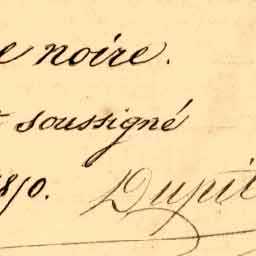 e noire.
soussigné
Dupit